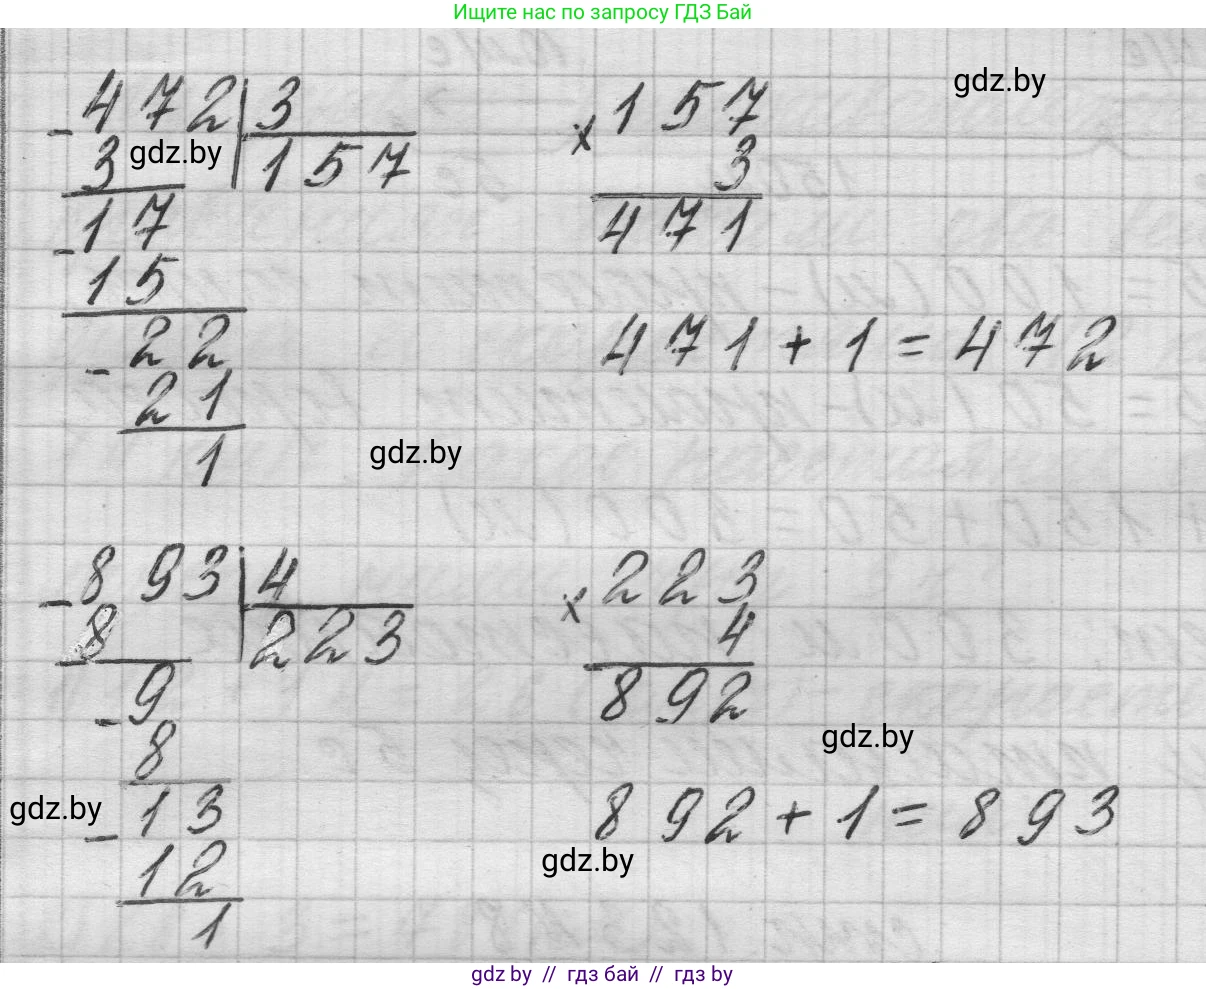 Ищите нас по запросу ГДЗ Бай
gdz.by
- 472 | 3
3 157
gdz.by
- 17
15
- 22
21
1
× 157
3
471
471 + 1 = 472
gdz.by
- 893 | 4
8 223
- 9
8
- 13
12
1
× 223
4
892
gdz.by
892 + 1 = 893
gdz.by
gdz.by
gdz by // гдз бай // гдз by